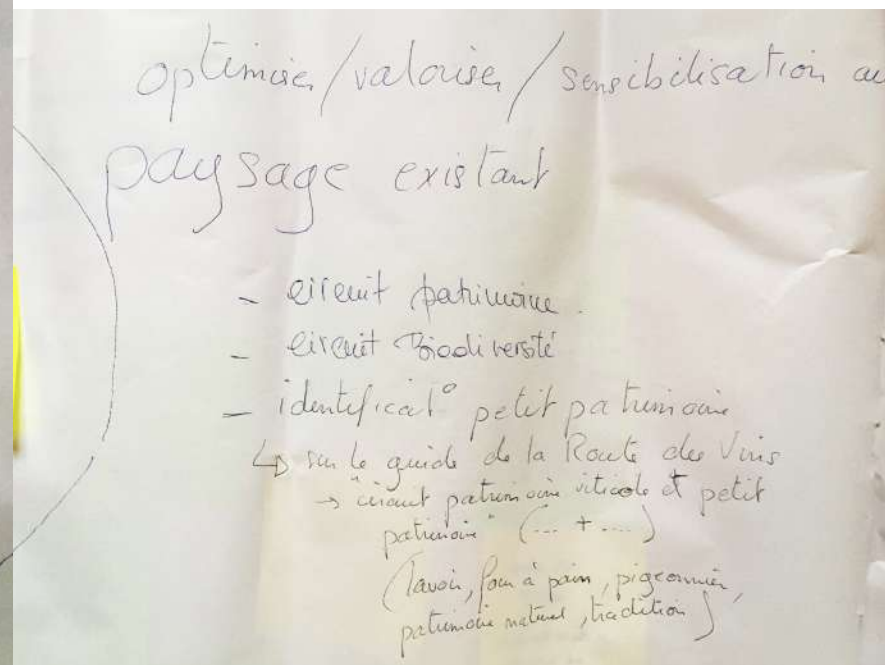 optimiser/valoriser/sensibilisation au
paysage existant
- circuit patrimoine.
- circuit Biodiversité
- identificat° petit patrimoine
↳ sur le guide de la Route des Vins
→ "circuit patrimoine viticole et petit
patrimoine" (... + ....)
(lavoir, four à pain, pigeonnier,
patrimoine naturel, tradition)